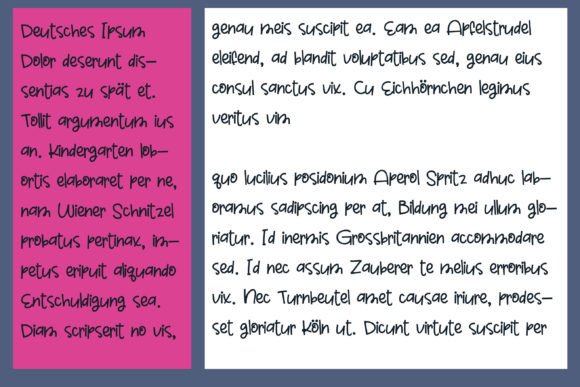 Deutsches Ipsum
Dolor deserunt dis-
sentias zu spät et.
Tollit argumentum ius
an. Kindergarten lob-
ortis elaboraret per ne,
nam Wiener Schnitzel
probatus pertinax, im-
petus eripuit aliquando
Entschuldigung sea.
Diam scripserit no vis,
genau meis suscipit ea. Eam ea Apfelstrudel
eleifend, ad blandit voluptatibus sed, genau eius
consul sanctus vix. Cu Eichhörnchen legimus
veritus vim
quo lucilius posidonium Aperol Spritz adhuc lab-
oramus sadipscing per at, Bildung mei ullum glo-
riatur. Id inermis Grossbritannien accommodare
sed. Id nec assum Zauberer te melius erroribus
vix. Nec Turnbeutel amet causae iriure, prodes-
set gloriatur Köln ut. Dicunt virtute suscipit per